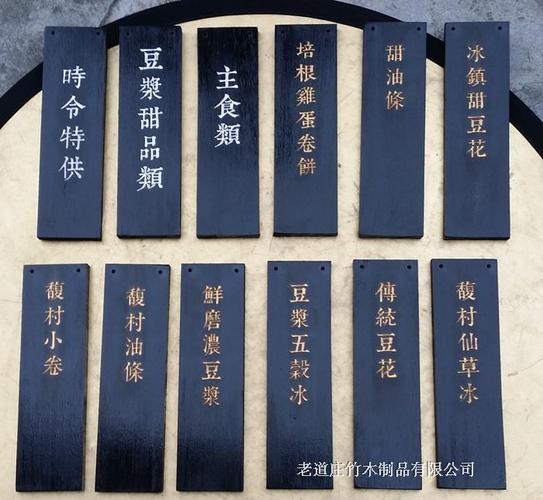 時令特供
豆漿甜品類
主食類
培根雞蛋卷餅
甜油條
冰鎮甜豆花
馥村小卷
馥村油條
鮮磨濃豆漿
豆漿五穀冰
傳統豆花
馥村仙草冰
老道庄竹木制品有限公司